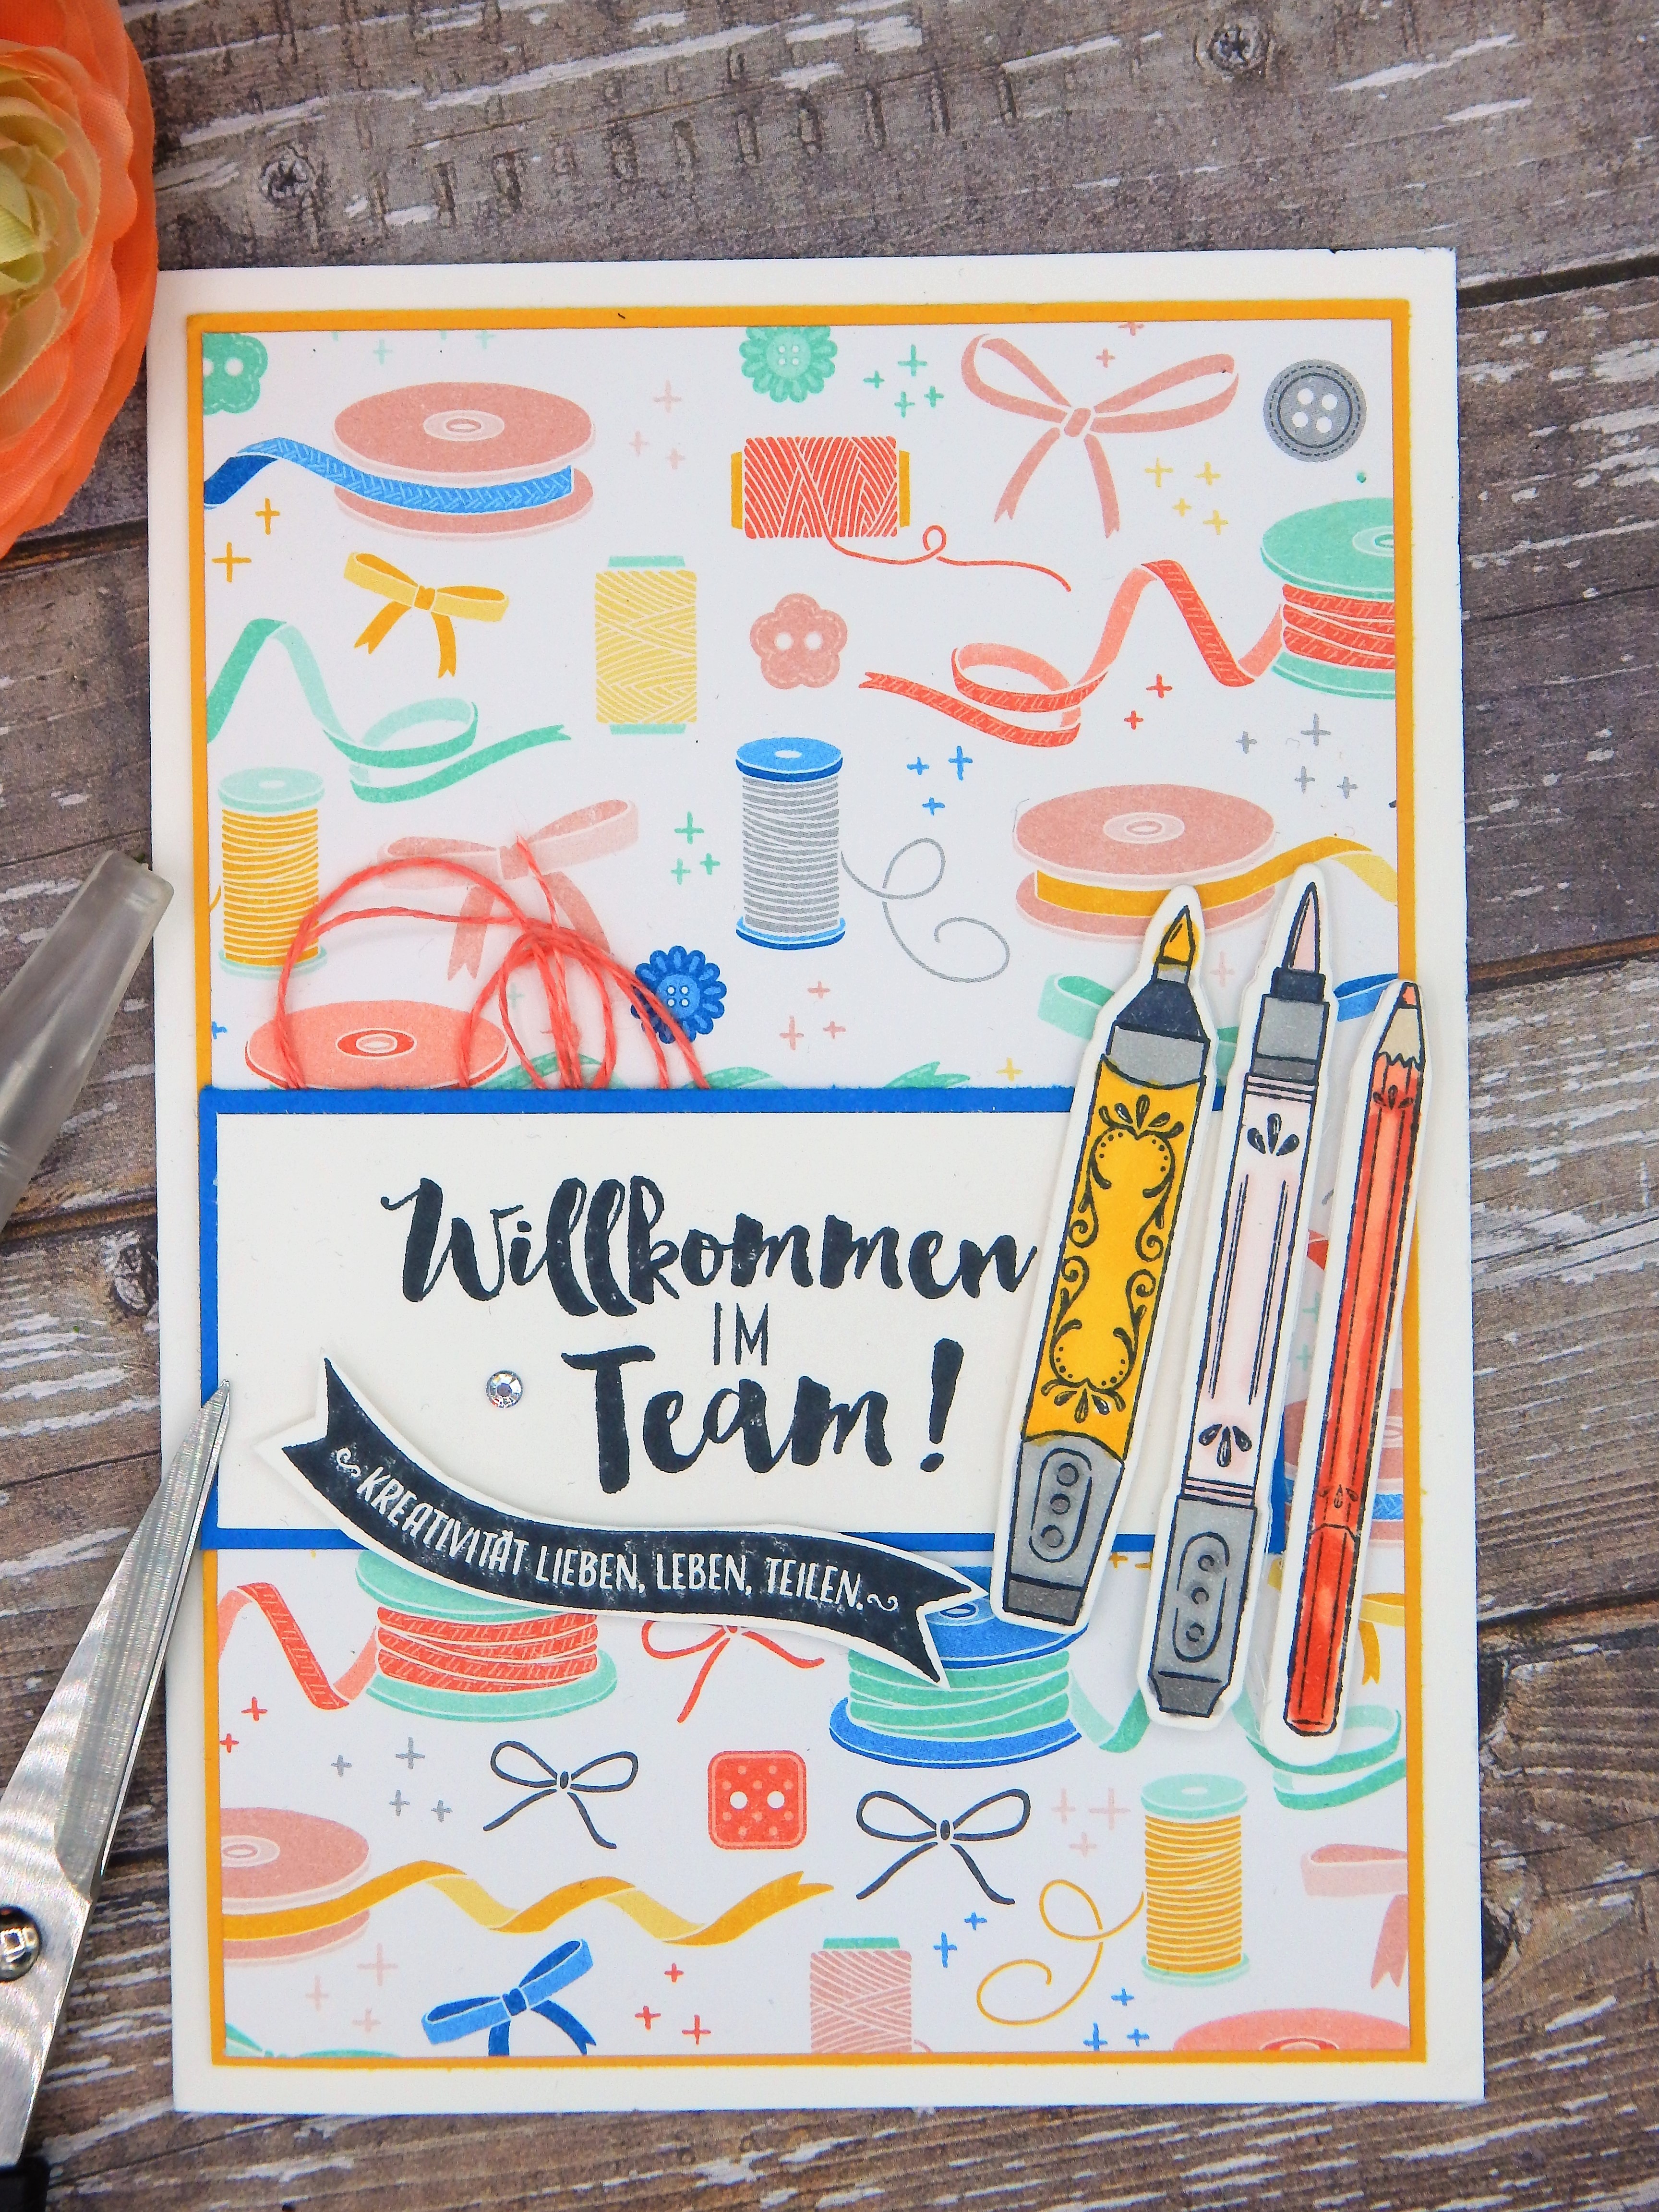 Willkommen
IM
Team!
KREATIVITÄT LIEBEN, LEBEN, TEILEN.